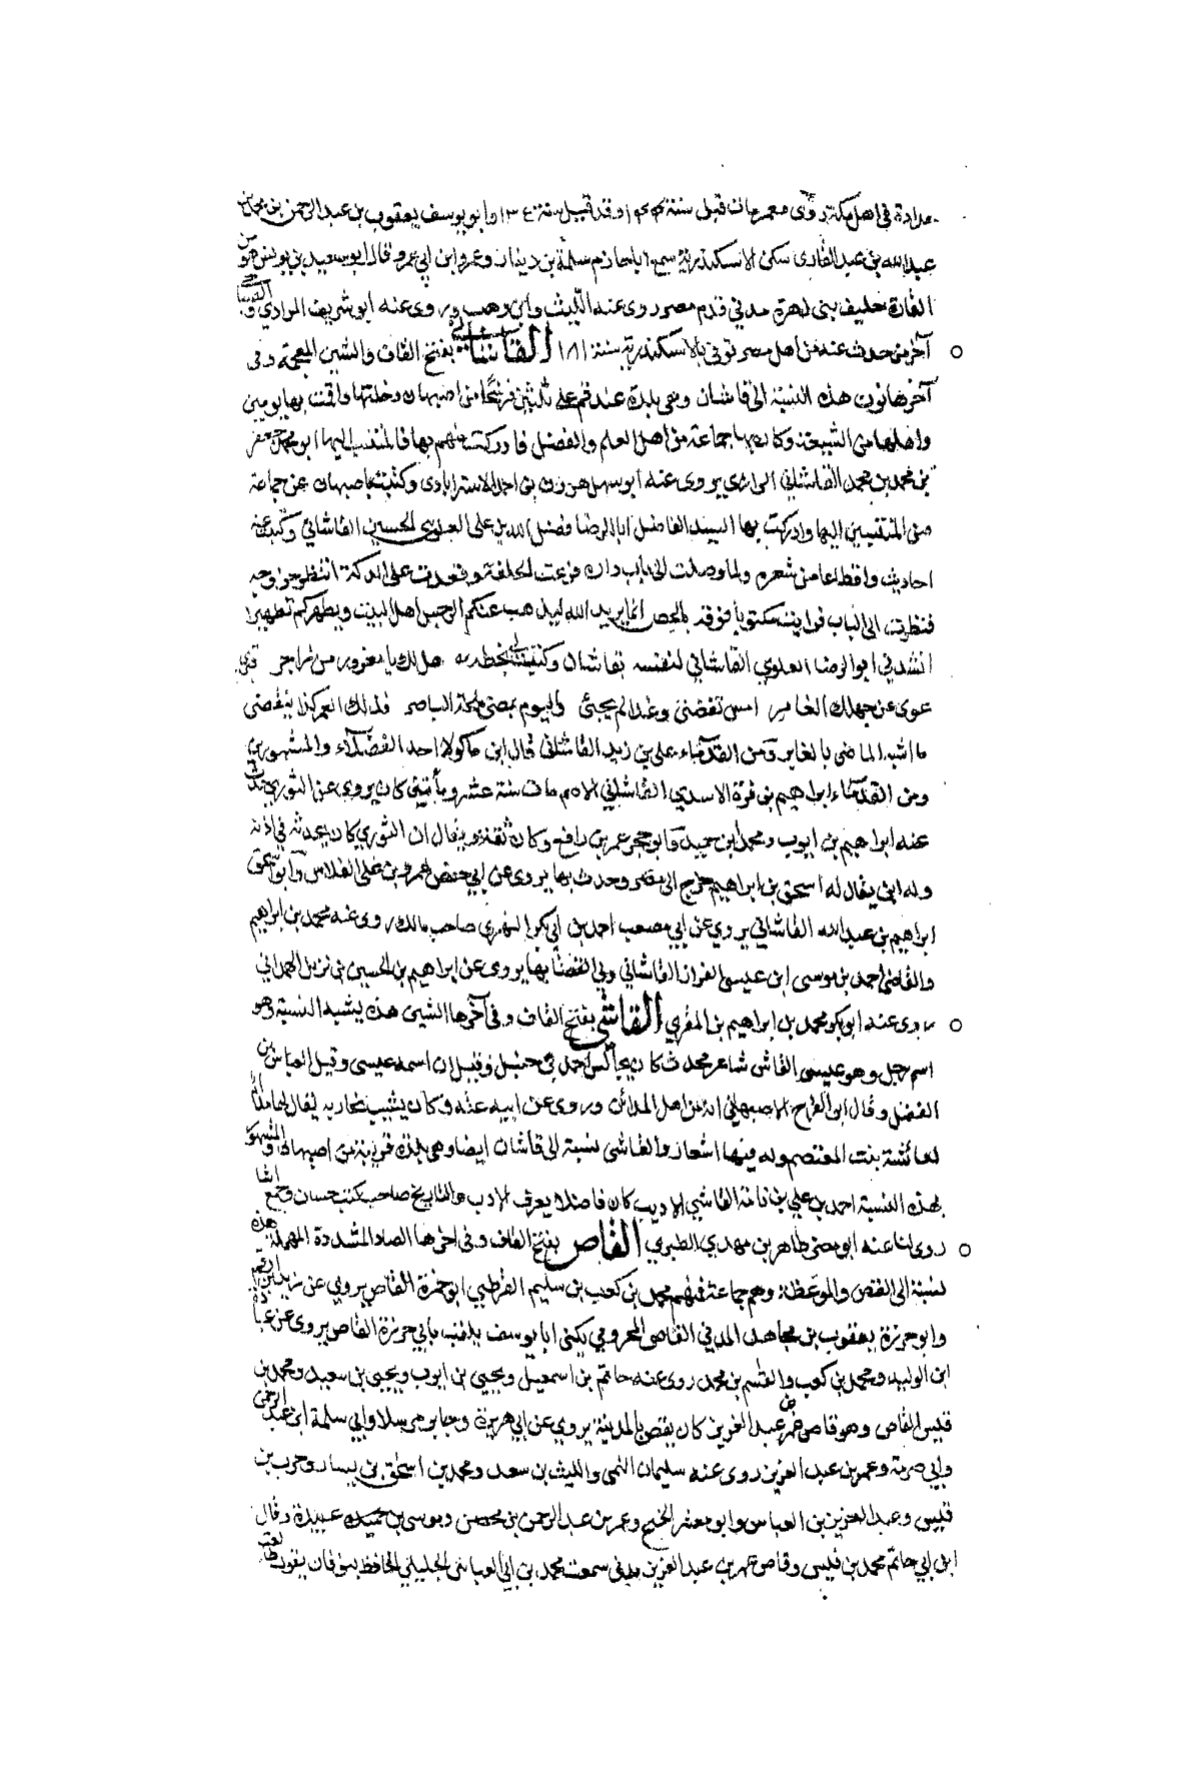 عداده في اهل مكة روى معمر مات قبل سنة وقد قيل سنة ١٣٤ وابو يوسف يعقوب بن عبد الرحمن بن محمد بن
عبد الله بن عبد القارى سكن الاسكندرية سمع ابا حازم سلمة بن دينار وعمرو ابن ابي عمرو قال ابو سعيد بن يونس هو من
القارة حليف بنى زهرة مدني قدم مصر روى عنه الليث وابن وهب وروى عنه ابو شريف المرادي و
آخر من حدث عنه من اهل مصر توفى بالاسكندرية سنة ١٨١ القاشاني بفتح القاف والشين المعجمة وفى
آخرها نون هذه النسبة الى قاشان وهى بلدة عند قم على ثلثين فرسخا من اصبهان دخلتها واقمت بها يومين
واهلها من الشيعة وكان بها جماعة من اهل العلم والفضل فادركت منهم بها فالمنتسب اليها ابو محمد جعفر
بن محمد بن محمد القاشاني الرازي يروى عنه ابو سهل هرون بن احمد الاسترابادى وكتبت باصبهان عن جماعة
من المنتسبين اليها وادركت بها السيد الفاضل ابا الرضا فضل الله بن على العلوى الحسيني القاشاني وكتبت عنه
احاديث واقطاعا من شعره ولما وصلت الى باب داره قرعت الحلقة وقعدت على الدكة انتظر خروجه
فنظرت الى الباب فرايت مكتوبا فوقه بالجص انما يريد الله ليذهب عنكم الرجس اهل البيت ويطهركم تطهيرا
انشدني ابو الرضا العلوي القاشاني لنفسه بقاشان وكتب لى بخطه هل لك يا مغرور من زاجر
عوى عن جهلك الغامر امس تقضى وغدا لم يجئ واليوم يمضى لمحة الباصر فذلك العمر كذا ينقضى
ما اشبه الماضى بالغابر ومن القدماء على بن زيد القاشاني قال ابن ماكولا احد الفضلاء والمشهورين
ومن القدماء ابراهيم بن قرة الاسدي القاشاني الاصم مات سنة عشر ومأتين كان يروى عن الثوري حدث
عنه ابراهيم بن ايوب ومحمد ابن حميد وابو حجر عمر بن رافع وكان ثقة ويقال ان الثوري كان يحدثه في اذنه
وله ابن يقال له اسحق بن ابراهيم خرج الى مصر وحدث بها يروى عن ابي حفص عمرو بن على الفلاس وابو اسحق
ابراهيم بن عبد الله القاشاني يروي عن ابي مصعب احمد بن ابي بكر الزهري صاحب مالك روى عنه محمد بن ابراهيم
والقاضى احمد بن موسى ابن عيسى الفزار القاشاني ولي القضا بها يروى عن ابراهيم بن الحسين بن نزيل الهمداني
روى عنه ابو بكر محمد بن ابراهيم بن المقري القاشي بفتح القاف وفى آخرها الشين هذه يشبه النسبة وهو
اسم رجل وهو عيسى القاشى شاعر محدث كان يجالس احمد بن حنبل وقيل ان اسمه عيسى وقيل العباس بن
الفضل وقال ابو الفراح الاصبهاني انه من اهل المدائن وروى عن ابيه عنه وكان يشبب بجارية يقال لها
لعائشة بنت المعتصم وله فيها اشعار والقاشى نسبة الى قاشان ايضا وهى بلدة قريبة من اصبهان والمشهور
بهذه النسبة احمد بن علي بن نامة القاشي الاديب كان فاضلا يعرف الادب والتاريخ صاحب كتب حسان وجمع
روى لنا عنه ابو مضى طاهر بن مهدي الطبري القاص بفتح القاف وفى اخرها الصاد المشددة المهملة هذه
نسبة الى القصص والموعظة وهم جماعة فمنهم محمد بن كعب بن سليم القرظي ابو حمزة القاص يروى عن زيد بن ارقم
وابو حزرة يعقوب بن مجاهد المدني القاص المخزومي يكنى ابا يوسف يلقب بابي حزرة القاص يروى عن عبادة
ابن الوليد ومحمد بن كعب والقسم بن محمد روى عنه حاتم بن اسمعيل ويحيى بن ايوب ويحيى بن سعيد ومحمد بن
قيس القاص وهو قاص عمر بن عبد العزيز كان يقص بالمدينة يروي عن ابي هريرة وجابر مرسلا وابي سلمة ابن عبد الرحمن
وابي صرمة وعمر بن عبد العزيز روى عنه سليمان التيمى والليث بن سعد ومحمد بن اسحق بن يسار وحرب بن
قيس وعبد العزيز بن العباس وابو معشر نجيح وعمر بن عبد الرحمن بن محصن وموسى بن عبيدة وقال
ابن ابي حاتم محمد بن قيس وقاص عمر بن عبد العزيز مدني سمعت محمد بن ابي العباس الخليلي الحافظ بنوقان يقول